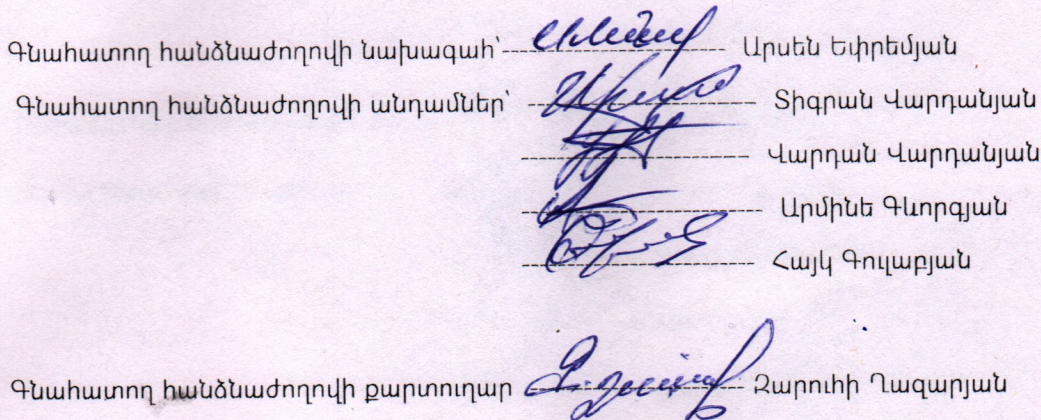 Գնահատող հանձնաժողովի նախագահ՝ Արսեն Եփրեմյան
Գնահատող հանձնաժողովի անդամներ՝ Տիգրան Վարդանյան
Վարդան Վարդանյան
Արմինե Գևորգյան
Հայկ Գուլաբյան
Գնահատող հանձնաժողովի քարտուղար Զարուհի Ղազարյան